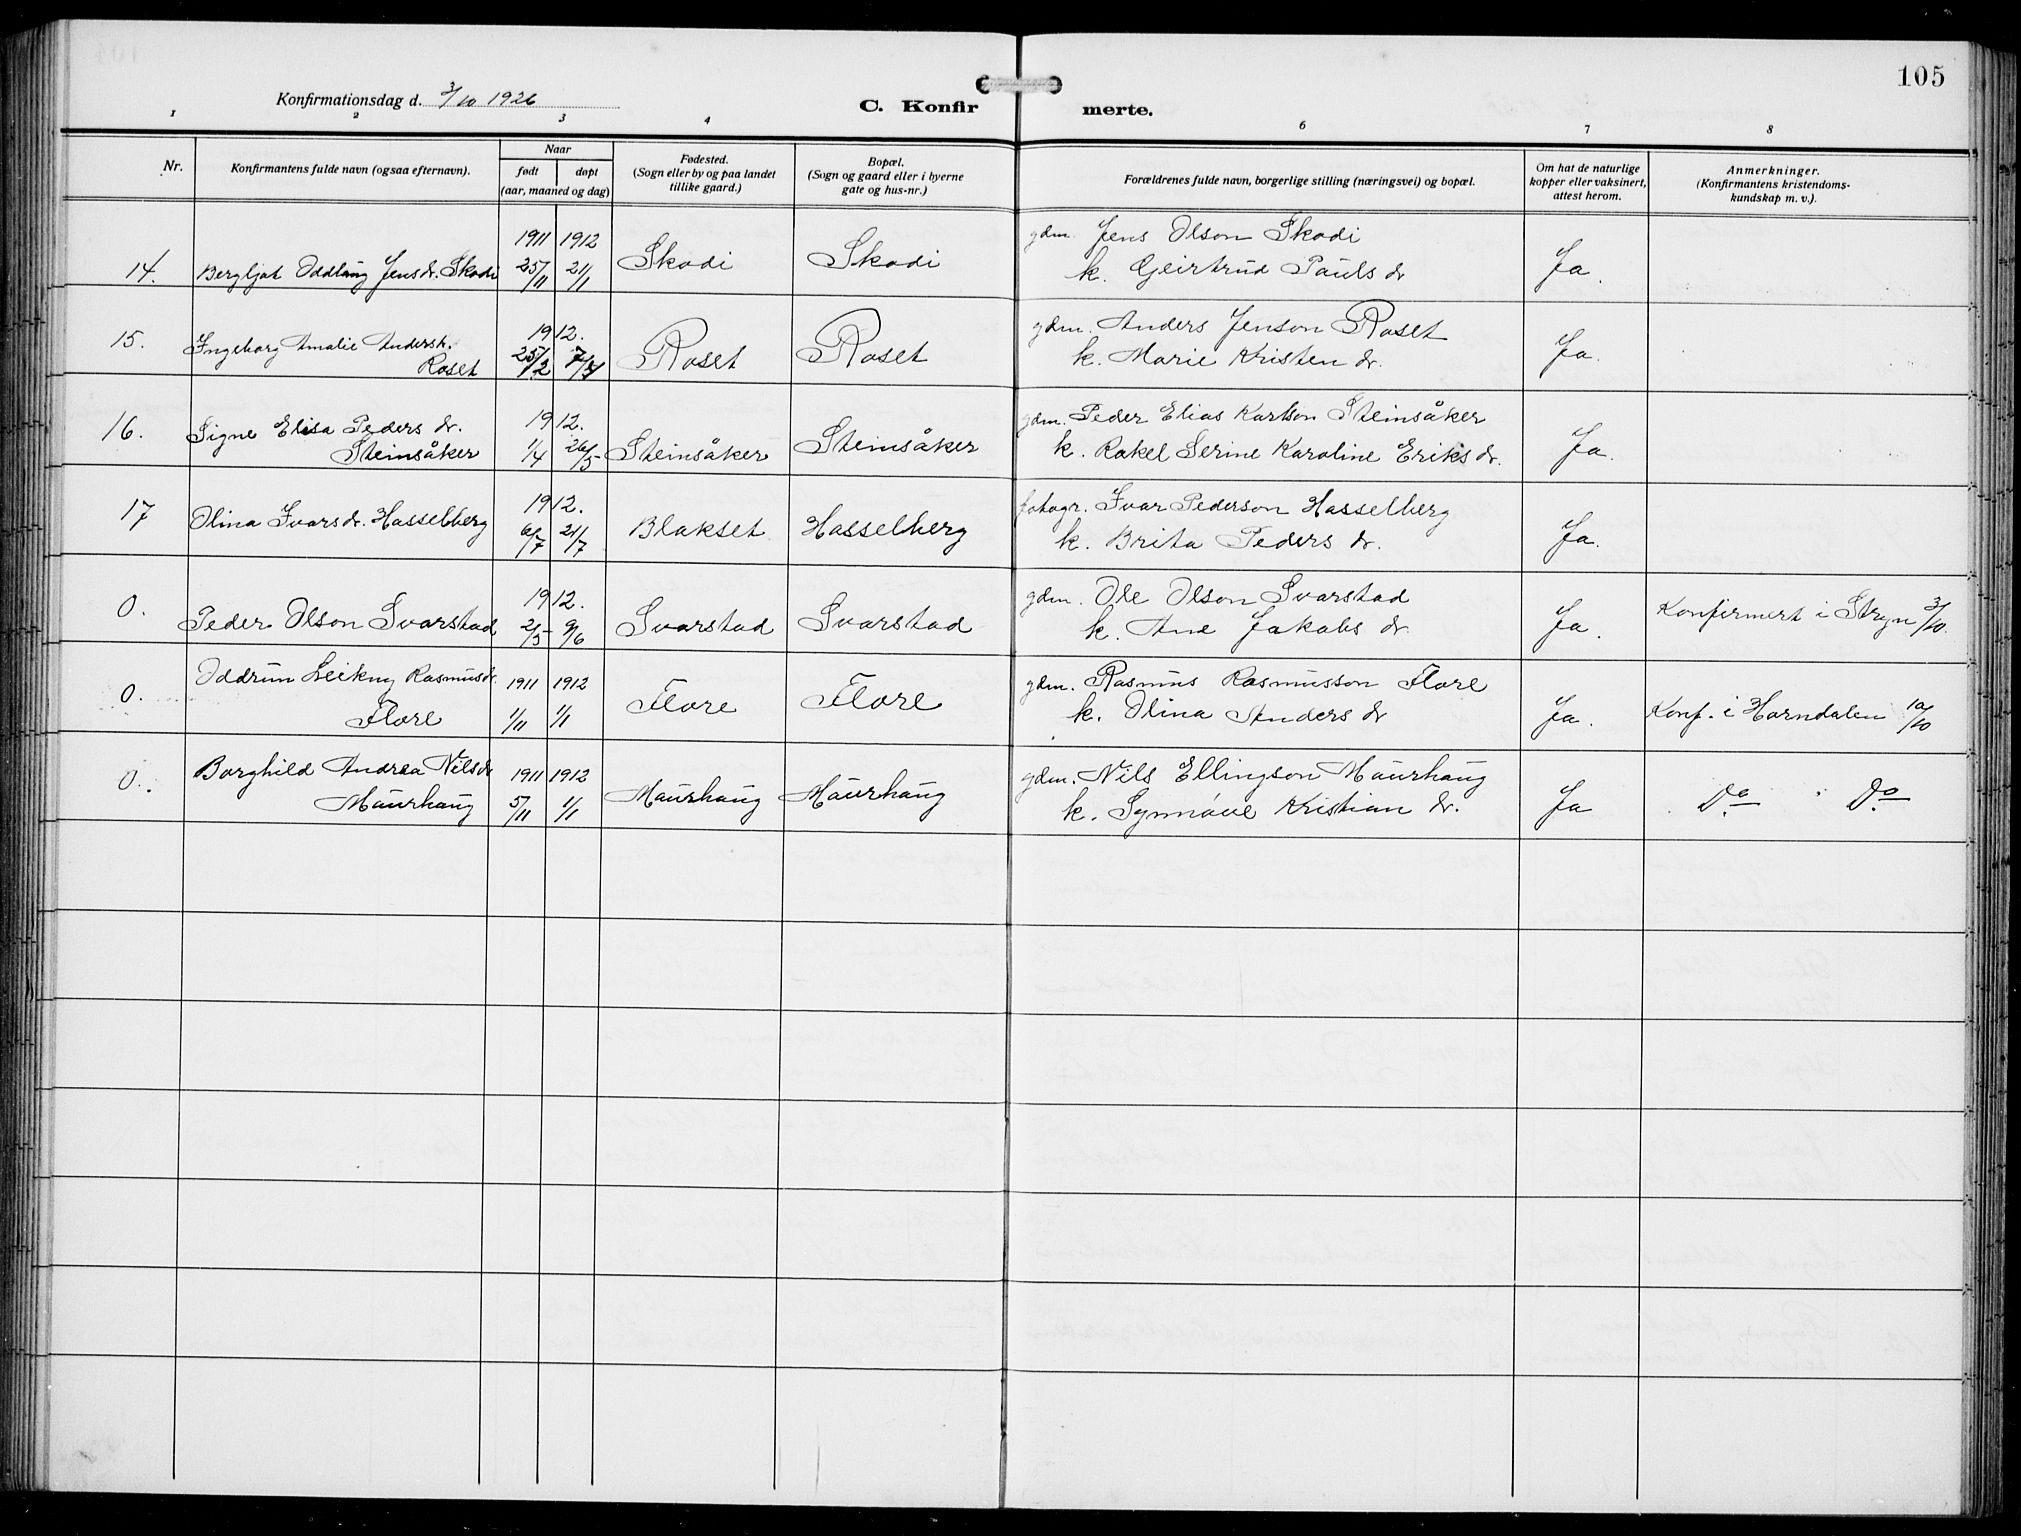 105
Konfirmationsdag d. 3/10 1926
C. Konfirmerte.
1 2 3 4 6 7 8
Nr.
Konfirmantens fulde navn (ogsaa efternavn).
Naar
født døpt
(aar, maaned og dag)
Fødested.
(Sogn eller by og paa landet
tillike gaard.)
Bopæl.
(Sogn og gaard eller i byerne
gate og hus-nr.)
Forældrenes fulde navn, borgerlige stilling (næringsvei) og bopæl.
Om hat de naturlige
kopper eller vaksinert,
attest herom.
Anmerkninger.
(Konfirmantens kristendoms-
kundskap m. v.).
1911 1912 gdm. Jens Olson Skodi
14. Bergljot Oddlaug Jensdr. Skodi 25/11 21/1 Skodi Skodi k. Geirtrud Pauls dr Ja.
15. Ingeborg Amalie Andersdr. 1912. gdm. Anders Jenson Roset
Roset 25/2 7/4 Roset Roset k. Marie Kristen dr. Ja.
16. Signe Elisa Peders dr. 1912. gdm. Peder Elias Karlson Steinsåker
Steinsåker 1/4 26/5 Steinsåker Steinsåker k. Rakel Serine Karoline Eriks dr. Ja.
17 Olina Ivarsdr. Hasselberg 1912. fotogr. Ivar Pederson Hasselberg
6/7 21/7 Blakset Hasselberg k. Brita Peders dr. Ja.
0. 1912. gdm. Ole Olson Svarstad
Peder Olson Svarstad 2/5 9/6 Svarstad Svarstad k. Ane Jakobs dr. Ja. Konfirmert i Stryn 3/10.
0. Oddrun Leikny Rasmusdr. 1911 1912 gdm. Rasmus Rasmusson Flore
Flore 1/11 1/1 Flore Flore k. Olina Anders dr Ja. Konf. i Horndalen 10/10
0. Borghild Andrea Nilsdr 1911 1912 gdm. Nils Ellingson Maurhaug
Maurhaug 5/11 1/1 Maurhaug Maurhaug k. Synnøve Kristian dr. Ja Do Do